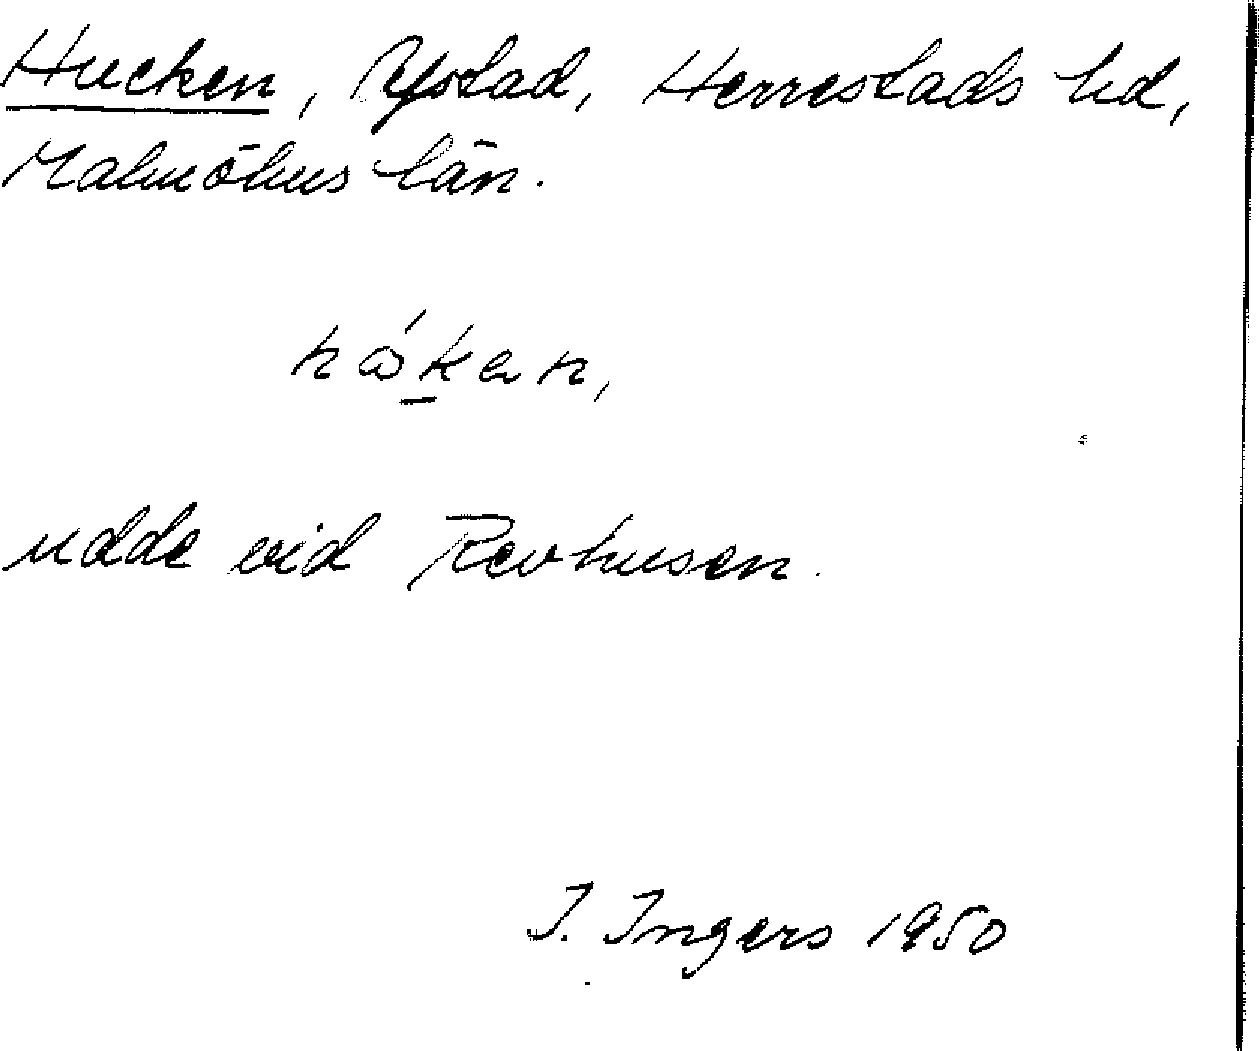 Hucken, Ystad, Herrestads hd,
Malmöhus län.
udde vid Revhusen.
I. Ingers 1950